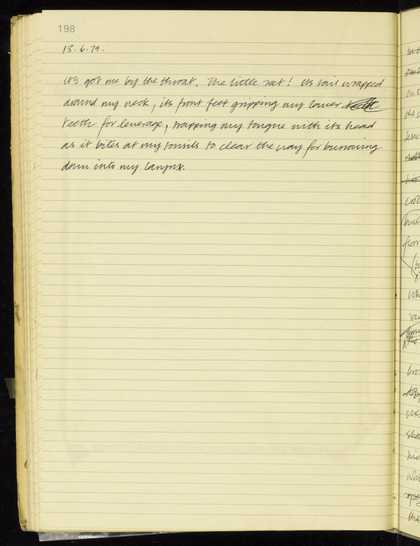 198
13.6.79.
it's got me by the throat. The little rat! Its tail wrapped
around my neck, its front feet gripping my lower
teeth for leverage, trapping my tongue with its head
as it bites at my tonsils to clear the way for burrowing
down into my larynx.